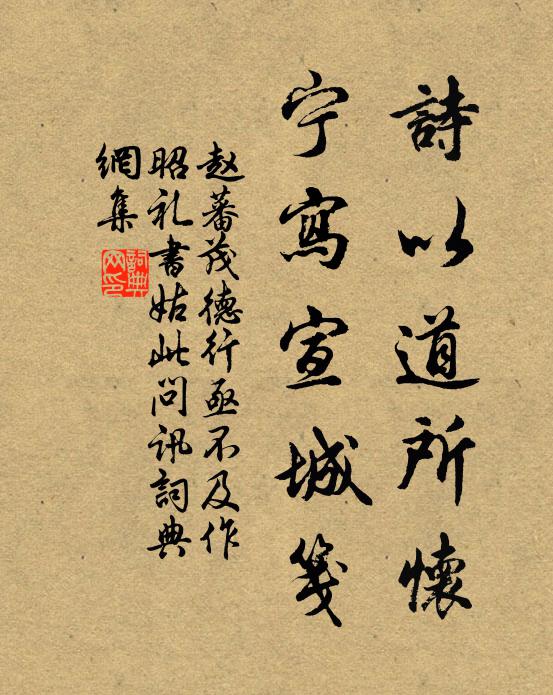 詩以道所懷
宁寫宣城箋
赵蕃茂德行亟不及作
昭礼書姑此问讯詞典
網集
詞典网印